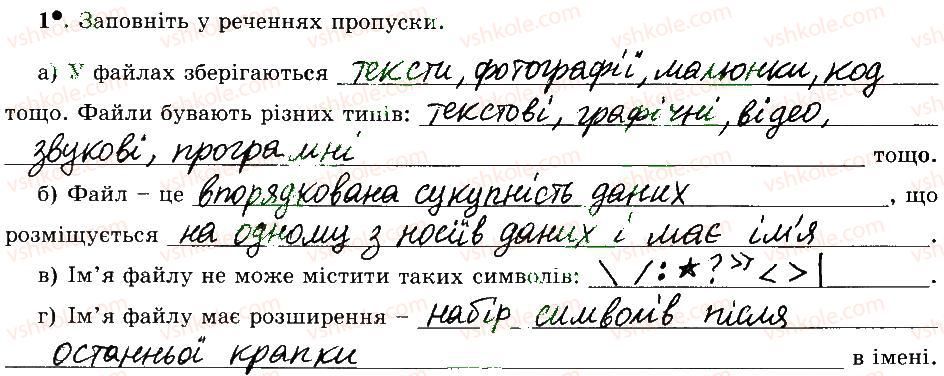 1•. Заповніть у реченнях пропуски.
а) У файлах зберігаються тексти, фотографії, малюнки, код
тощо. Файли бувають різних типів: текстові, графічні, відео,
звукові, програмні тощо.
б) Файл – це впорядкована сукупність даних, що
розміщується на одному з носіїв даних і має ім'я.
в) Ім'я файлу не може містити таких символів: \ /: * ? » < > |.
г) Ім'я файлу має розширення – набір символів після
останньої крапки в імені.